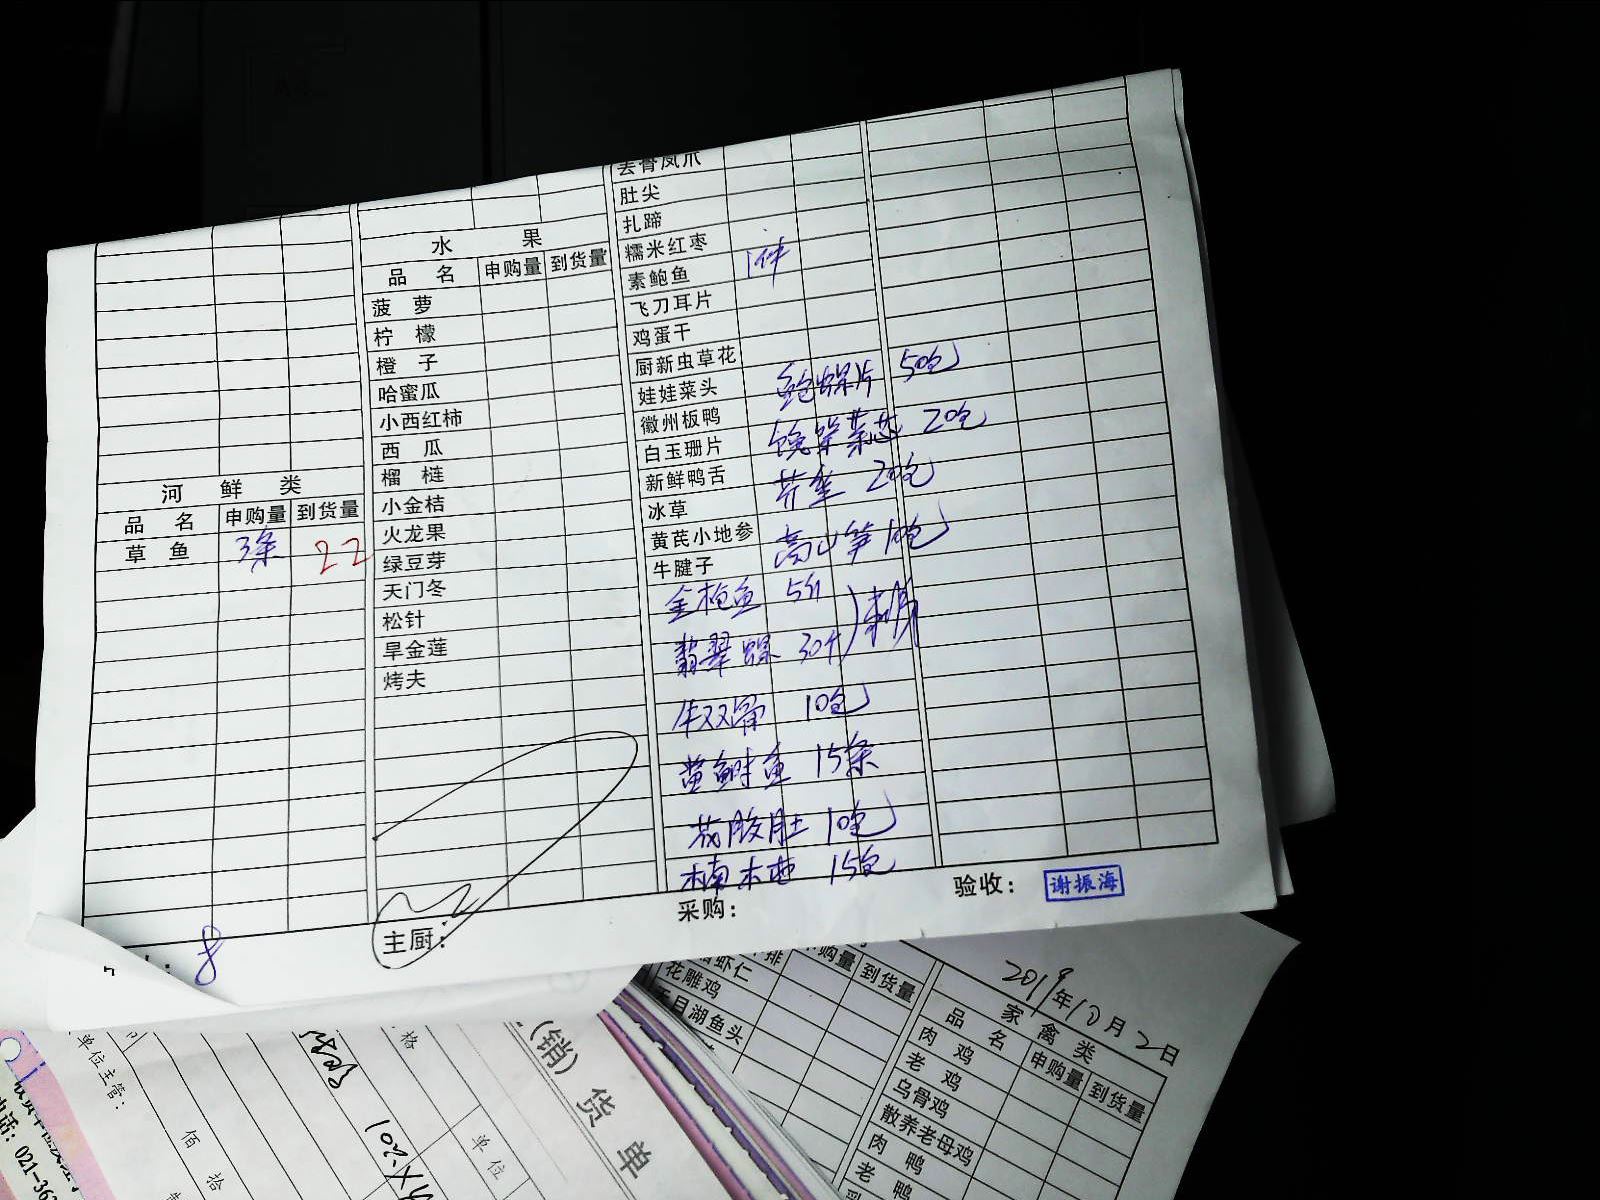 河 鲜 类
品 名 申购量 到货量
草 鱼 3条 22
水 果
品 名 申购量 到货量
菠 萝
柠 檬
橙 子
哈蜜瓜
小西红柿
西 瓜
榴 梿
小金桔
火龙果
绿豆芽
天门冬
松针
旱金莲
烤夫
去骨凤爪
肚尖
扎蹄
糯米红枣
素鲍鱼 1件
飞刀耳片
鸡蛋干
厨新虫草花
娃娃菜头
徽州板鸭
白玉珊片
新鲜鸭舌
冰草
黄芪小地参
牛腱子
鲍螺片 50包
菜芯 20包
20包
高山笋 10包
金枪鱼 5斤
翡翠螺 30个
10包
鱼 15条
花胶肚 10包
15包
主厨:
采购:
验收: 谢振海
8
虾仁
花雕鸡
天目湖鱼头
购量 到货量
2019年10月2日
家 禽 类
品 名 申购量 到货量
肉 鸡
老 鸡
乌骨鸡
散养老母鸡
肉 鸭
老 鸭
(销) 货 单
单位
格
单位主管:
佰 拾
电话: 021-36